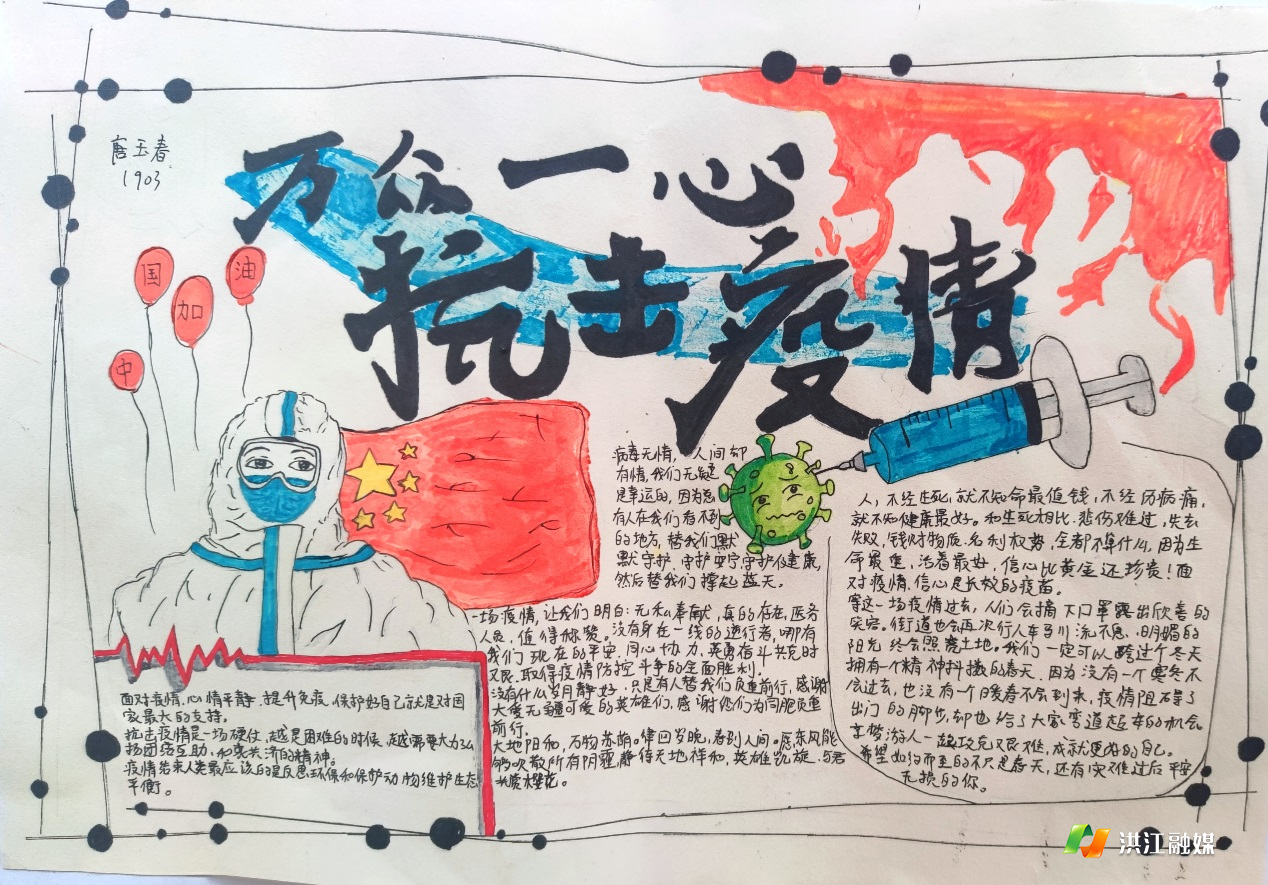 唐玉春
1903
万众一心
抗击疫情
国
油
加
中
病毒无情，人间却
有情，我们无疑
是幸运的，因为总
有人在我们看不到
的地方，替我们默
默守护，守护安宁，守护健康，
然后替我们撑起蓝天。
一场疫情，让我们明白：无私奉献，真的存在，医务
人员，值得称赞。没有身在一线的逆行者，哪有
我们现在的平安，同心协力，英勇奋斗共克时
艰，取得疫情防控斗争的全面胜利。
没有什么岁月静好，只是有人替我们负重前行，感谢
大爱无疆可爱的英雄们，感谢他们为同胞负重
前行。
大地阳和，万物苏萌。律回岁晚，春到人间。愿东风能
够吹散所有阴霾，静待天地祥和，英雄凯旋，与君
共赏樱花。
人，不经生死，就不知命最值钱，不经历病痛，
就不知健康最好。和生死相比，悲伤难过，失去
失败，钱财物质，名利权势，全都不算什么，因为生
命最重，活着最好，信心比黄金还珍贵！面
对疫情，信心是长效的疫苗。
等这一场疫情过去，人们会摘下口罩露出欣喜的
笑容。街道也会再次行人车马川流不息，明媚的
阳光终会照亮土地。我们一定可以跨过冬天
拥有一个精神抖擞的春天，因为没有一个寒冬不
会过去，也没有一个暖春不会到来，疫情阻碍了
出门的脚步，却也给了大家弯道超车的机会
一起攻克艰难，成就更好的自己。
希望如约而至的不只是春天，还有灾难过后平安
无损的你。
面对疫情，心情平静，提升免疫，保护好自己就是对国
家最大的支持。
抗击疫情是一场硬仗，越是困难的时候，越需要大力弘
扬团结互助、和衷共济的精神。
疫情苦来人类最应该的是反思环保和保护动物维护生态
平衡。
洪江融媒